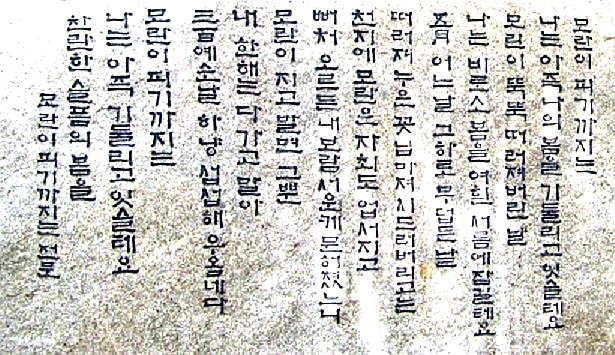 모란이 피기까지는
나는 아즉 나의 봄을 기둘리고 잇슬테요
모란이 뚝뚝 떠러져버린 날
나는 비로소 봄을 여흰 서름에 잠길테요
五月 어느날 그하로 무덥든 날
떠러져 누은 꽃닙마져 시드러버리고는
천지에 모란은 자최도 업서지고
뻐처 오르든 내 보람 서운케 문허졌느니
모란이 지고 말면 그뿐
내 한해는 다 가고 말아
三百예순날 하냥 섭섭해 우옵네다
모란이 피기까지는
나는 아즉 기둘리고 잇슬테요
찬란한 슬픔의 봄을
모란이 피기까지는 전문